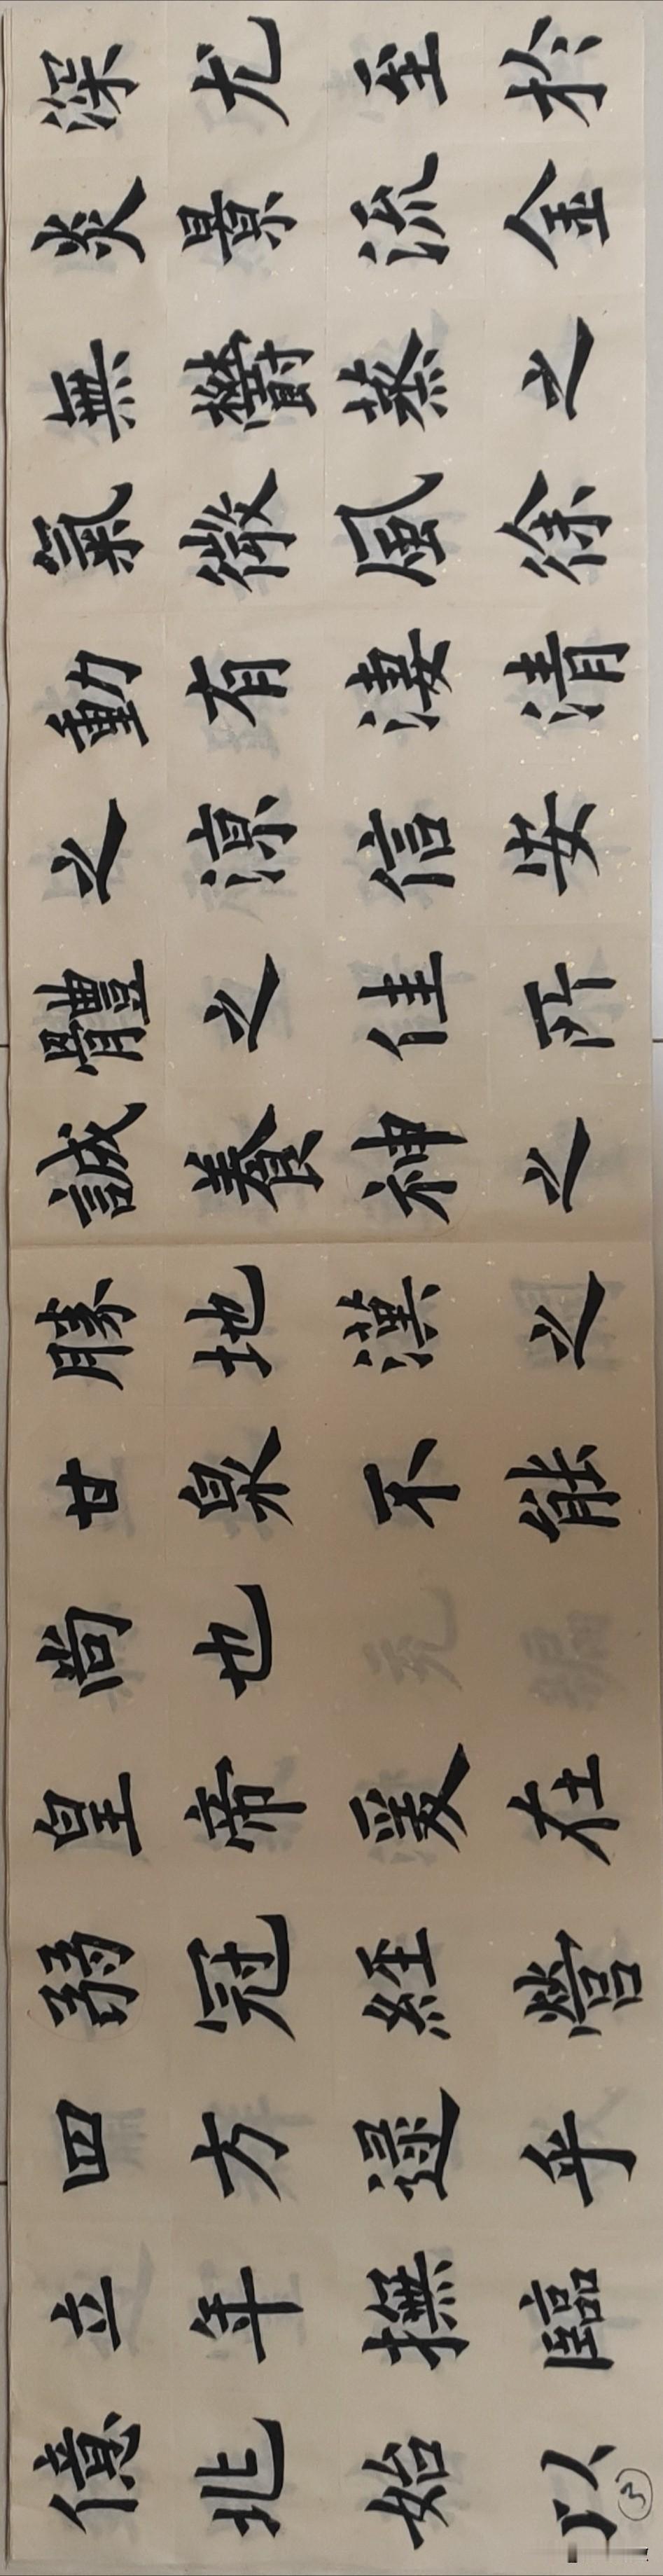 深尤至於
炎景流金
無鬱蒸之
氣微風徐
動有淒清
之涼信安
體之佳所
誠養神之
勝地漢之
甘泉不能
尚也
皇帝爰在
弱冠經營
四方逮乎
立年撫臨
億兆始以
③